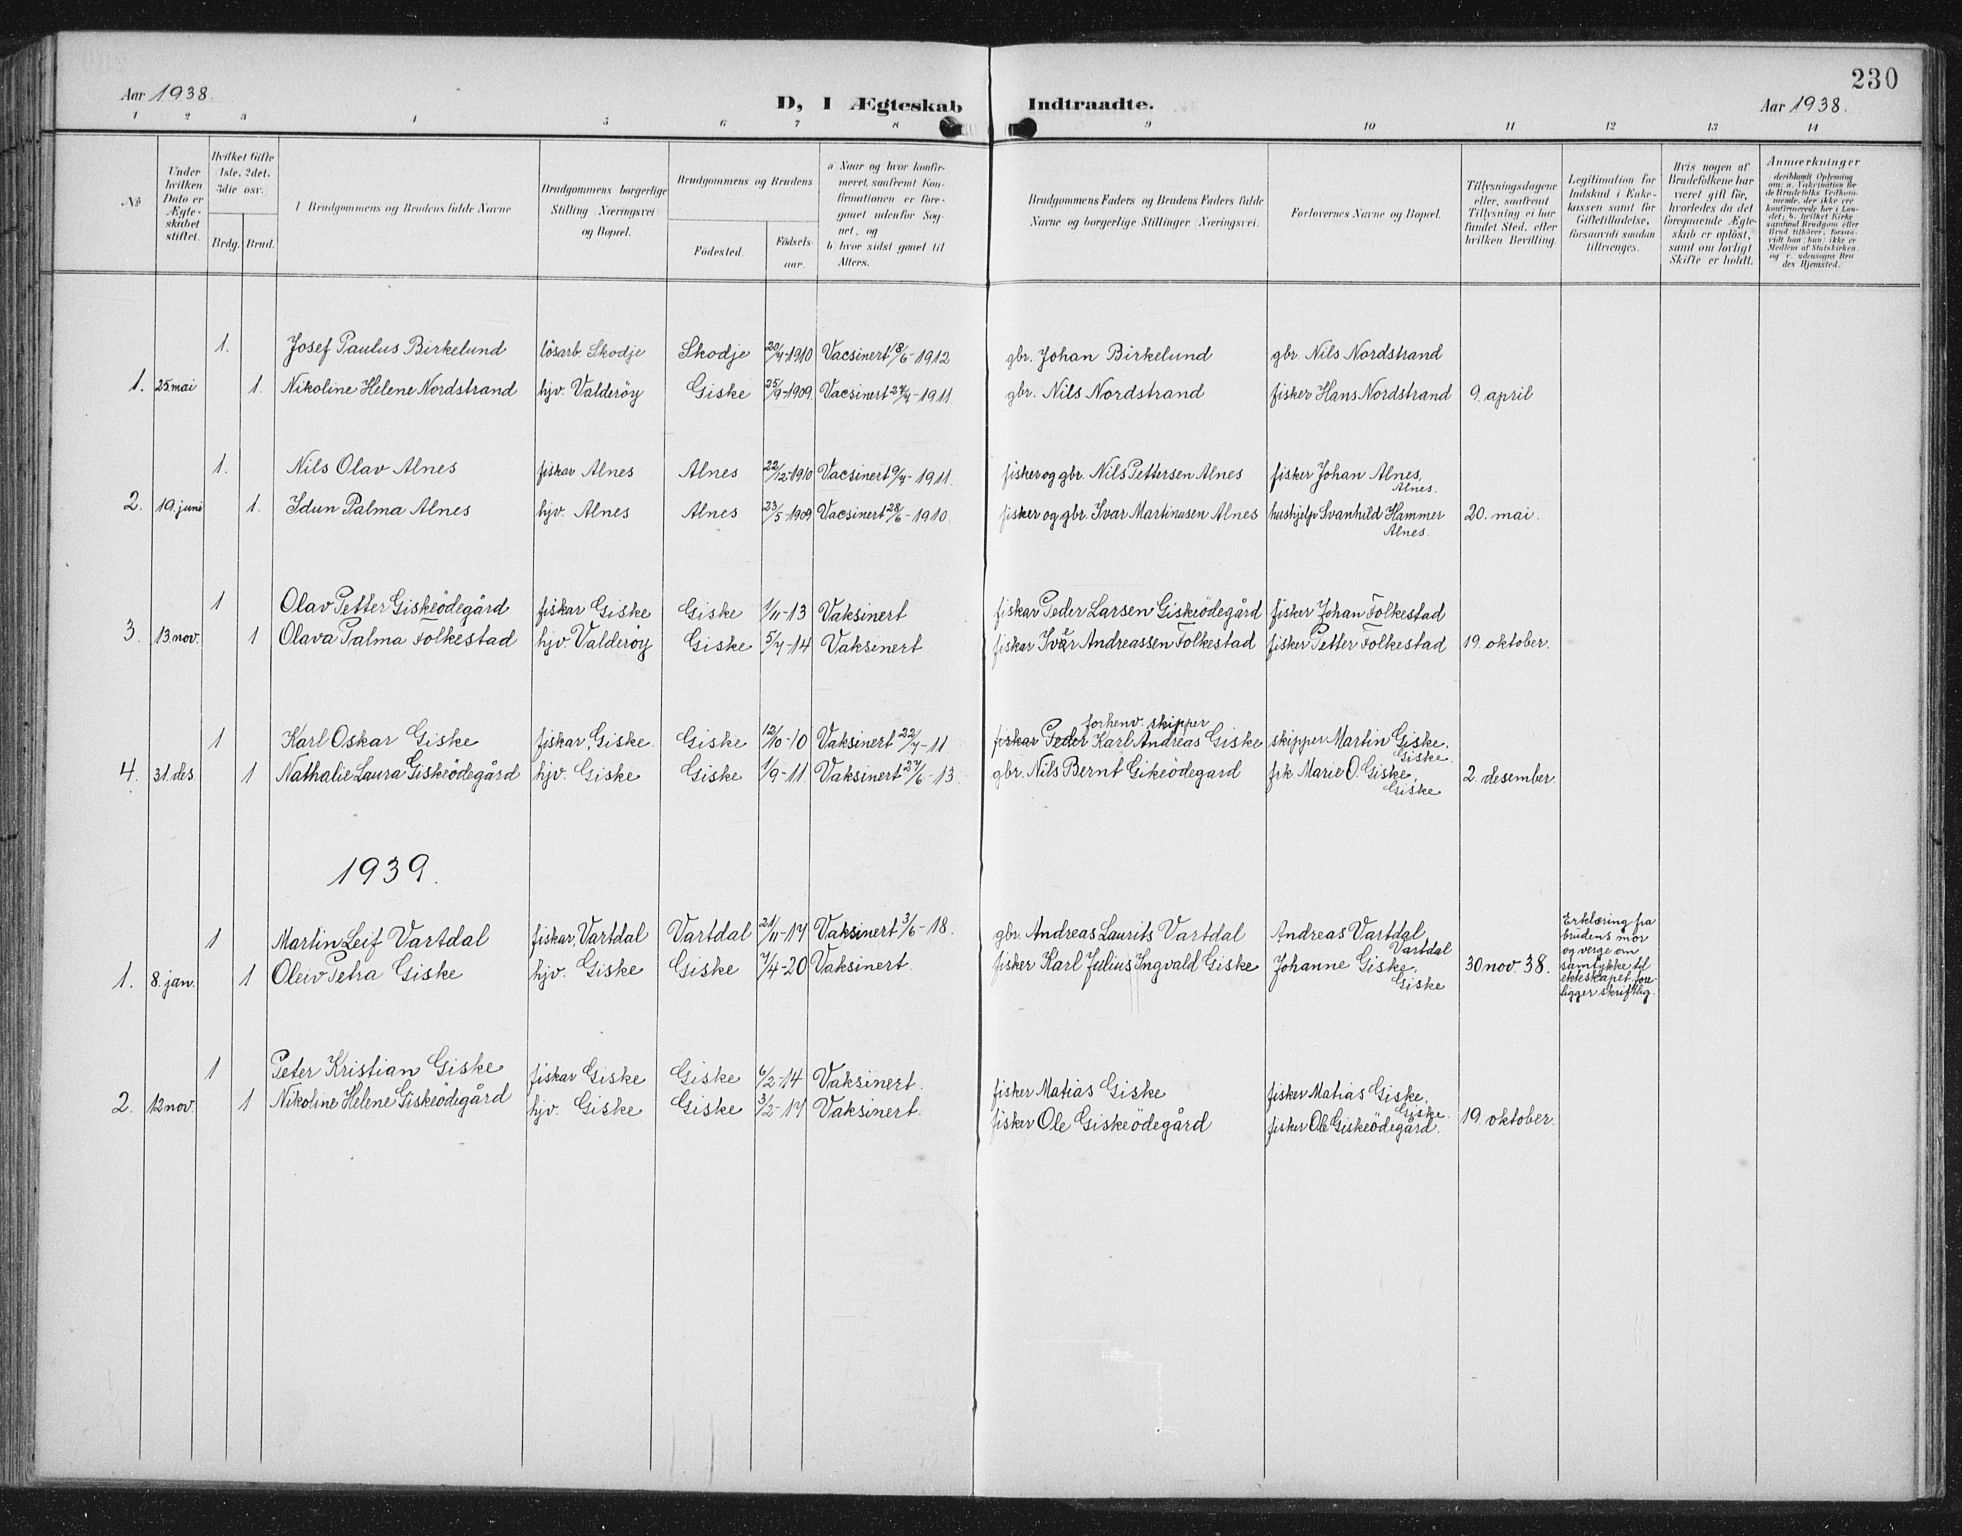 230
Aar 1938.
D, I Ægteskab Indtraadte.
Aar 1938.
1 2 3 4 5 6 7 8 9 10 11 12 13 14
No
Under hvilken Dato er Ægteskabet stiftet.
Hvilket Gifte 1ste, 2det, 3die osv.
Brdg. Brud.
Brudgommens og Brudens fulde Navne
Brudgommens borgerlige Stilling Næringsvei og Bopæl.
Brudgommens og Brudens
Fødested.
Fødselsaar.
a Naar og hvor konfirmeret, saafremt Konfirmationen er foregaaet udenfor Sognet, og
b. hvor sidst gaaet til Alters.
Brudgommens Faders og Brudens Faders fulde Navne og borgerlige Stillinger Næringsvei.
Forlovernes Navne og Bopæl.
Tillysningsdagene eller, saafremt Tillysning ei har fundet Sted, efter hvilken Bevilling.
Legitimation for Indskud i Enkekassen samt for Giftetilladelse, forsaavidt saadan tiltrænges.
Hvis nogen af Brudefolkene har været gift før, hvorledes da det foregaaende Ægteskab er opløst, samt om lovligt Skifte er holdt.
Anmærkninger
1. Josef Paulus Birkelund lösarb. Skodje Skodje 20/4-1910 Vacsinert 18/6-1912 gbr. Johan Birkelund gbr. Nils Nordstrand
1. 25 mai 1. Nikoline Helene Nordstrand hjv. Valderöy Giske 25/9-1909. Vacsinert 24/4-1911. gbr. Nils Nordstrand fisker Hans Nordstrand 9. april
1. Nils Olav Alnes fiskar Alnes Alnes 22/12-1910 Vacsinert 9/4-1911. fisker og gbr. Nils Pettersen Alnes fisker Johan Alnes, Alnes.
2. 19. juni 1. Idun Palma Alnes hjv. Alnes Alnes 23/5-1909 Vacsinert 28/6-1910. fisker og gbr. Ivar Martinusen Alnes hushjelp Svanhild Hammer Alnes. 20. mai.
1 Olav Petter Giskeödegård fiskar Giske Giske 1/11-13 Vaksinert fiskar Peder Larsen Giskeödegård fisker Johan Folkestad
3. 13 nov. 1 Olava Palma Folkestad hjv. Valderöy Giske 5/4-14 Vaksinert fiskar Iver Andreassen Folkestad fisker Petter Folkestad 19. oktober.
forhenv. skipper
1 Karl Oskar Giske fiskar, Giske. Giske 12/10-10 Vaksinert 22/4-11 fiskar Peder Karl Andreas Giske skipper Martin Giske, Giske.
4. 31. des. 1 Nathalie Laura Giskeödegård hjv. Giske Giske 1/9-11. Vaksinert 27/6-13. gbr. Nils Bernt Gikeödegard frk Marie O. Giske, Giske 2. desember.
1939.
1 Martin Leif Vartdal fiskar, Vartdal Vartdal 21/11-17 Vaksinert 3/6-18. gbr. Andreas Laurits Vartdal Andreas Vartdal Vartdal
1. 8. jan. 1 Oleiv Petra Giske hjv. Giske Giske 7/4-20 Vaksinert fisker Karl Julius Ingvald Giske Johanne Giske, Giske 30 nov. 38.
Erklæring fra
brudens mor
og verge om
samtykke til
ekteskapet fore-
ligger skriftlig.
1 Peter Kristian Giske fiskar Giske Giske 6/2-14 Vaksinert. fisker Matias Giske fisker Matias Giske, Giske.
2. 12 nov. 1 Nikoline Helene Giskeödegård hjv. Giske Giske 3/2-17 Vaksinert. fisker Ole Giskeödegård fisker Ole Giskeödegård. 19. oktober.